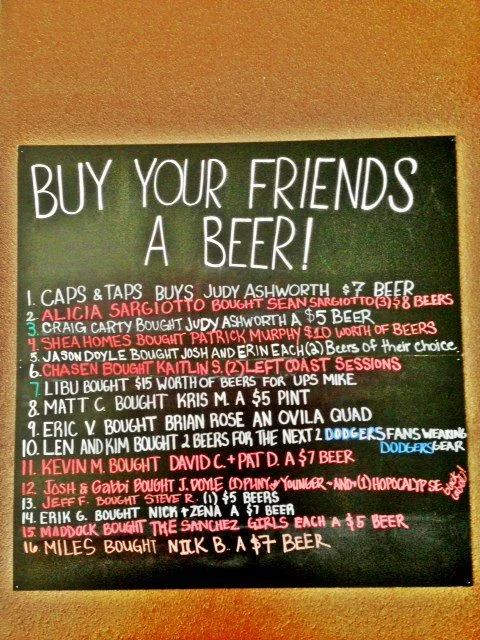 BUY YOUR FRIENDS
A BEER!
1. CAPS & TAPS BUYS JUDY ASHWORTH $7 BEER
2. ALICIA SARGIOTTO BOUGHT SEAN SARGIOTTO (3) $8 BEERS
3. CRAIG CARTY BOUGHT JUDY ASHWORTH A $5 BEER
4. SHEA HOMES BOUGHT PATRICK MURPHY $10 WORTH OF BEERS
5. JASON DOYLE BOUGHT JOSH AND ERIN EACH (2) Beers of their choice
6. CHASEN BOUGHT KAITLIN S. (2) LEFT COAST SESSIONS
7. LIBU BOUGHT $15 WORTH OF BEERS FOR UPS MIKE
8. MATT C. BOUGHT KRIS M. A $5 PINT
9. ERIC V. BOUGHT BRIAN ROSE AN OVILA QUAD
10. LEN AND KIM BOUGHT 2 BEERS FOR THE NEXT 2 DODGERS FANS WEARING
DODGERS GEAR
11. KEVIN M. BOUGHT DAVID C. + PAT D. A $7 BEER
12. Josh & Gabbi BOUGHT J. DOYLE (1) PLINY YOUNGER ~AND~ (1) HOPOCALYPSE
13. JEFF F. BOUGHT STEVE R. (1) $5 BEERS
14. ERIK G. BOUGHT NICK + ZENA A $7 BEER
15. MADDOCK BOUGHT THE SANCHEZ GIRLS EACH A $5 BEER
16 MILES BOUGHT NICK B. A $7 BEER